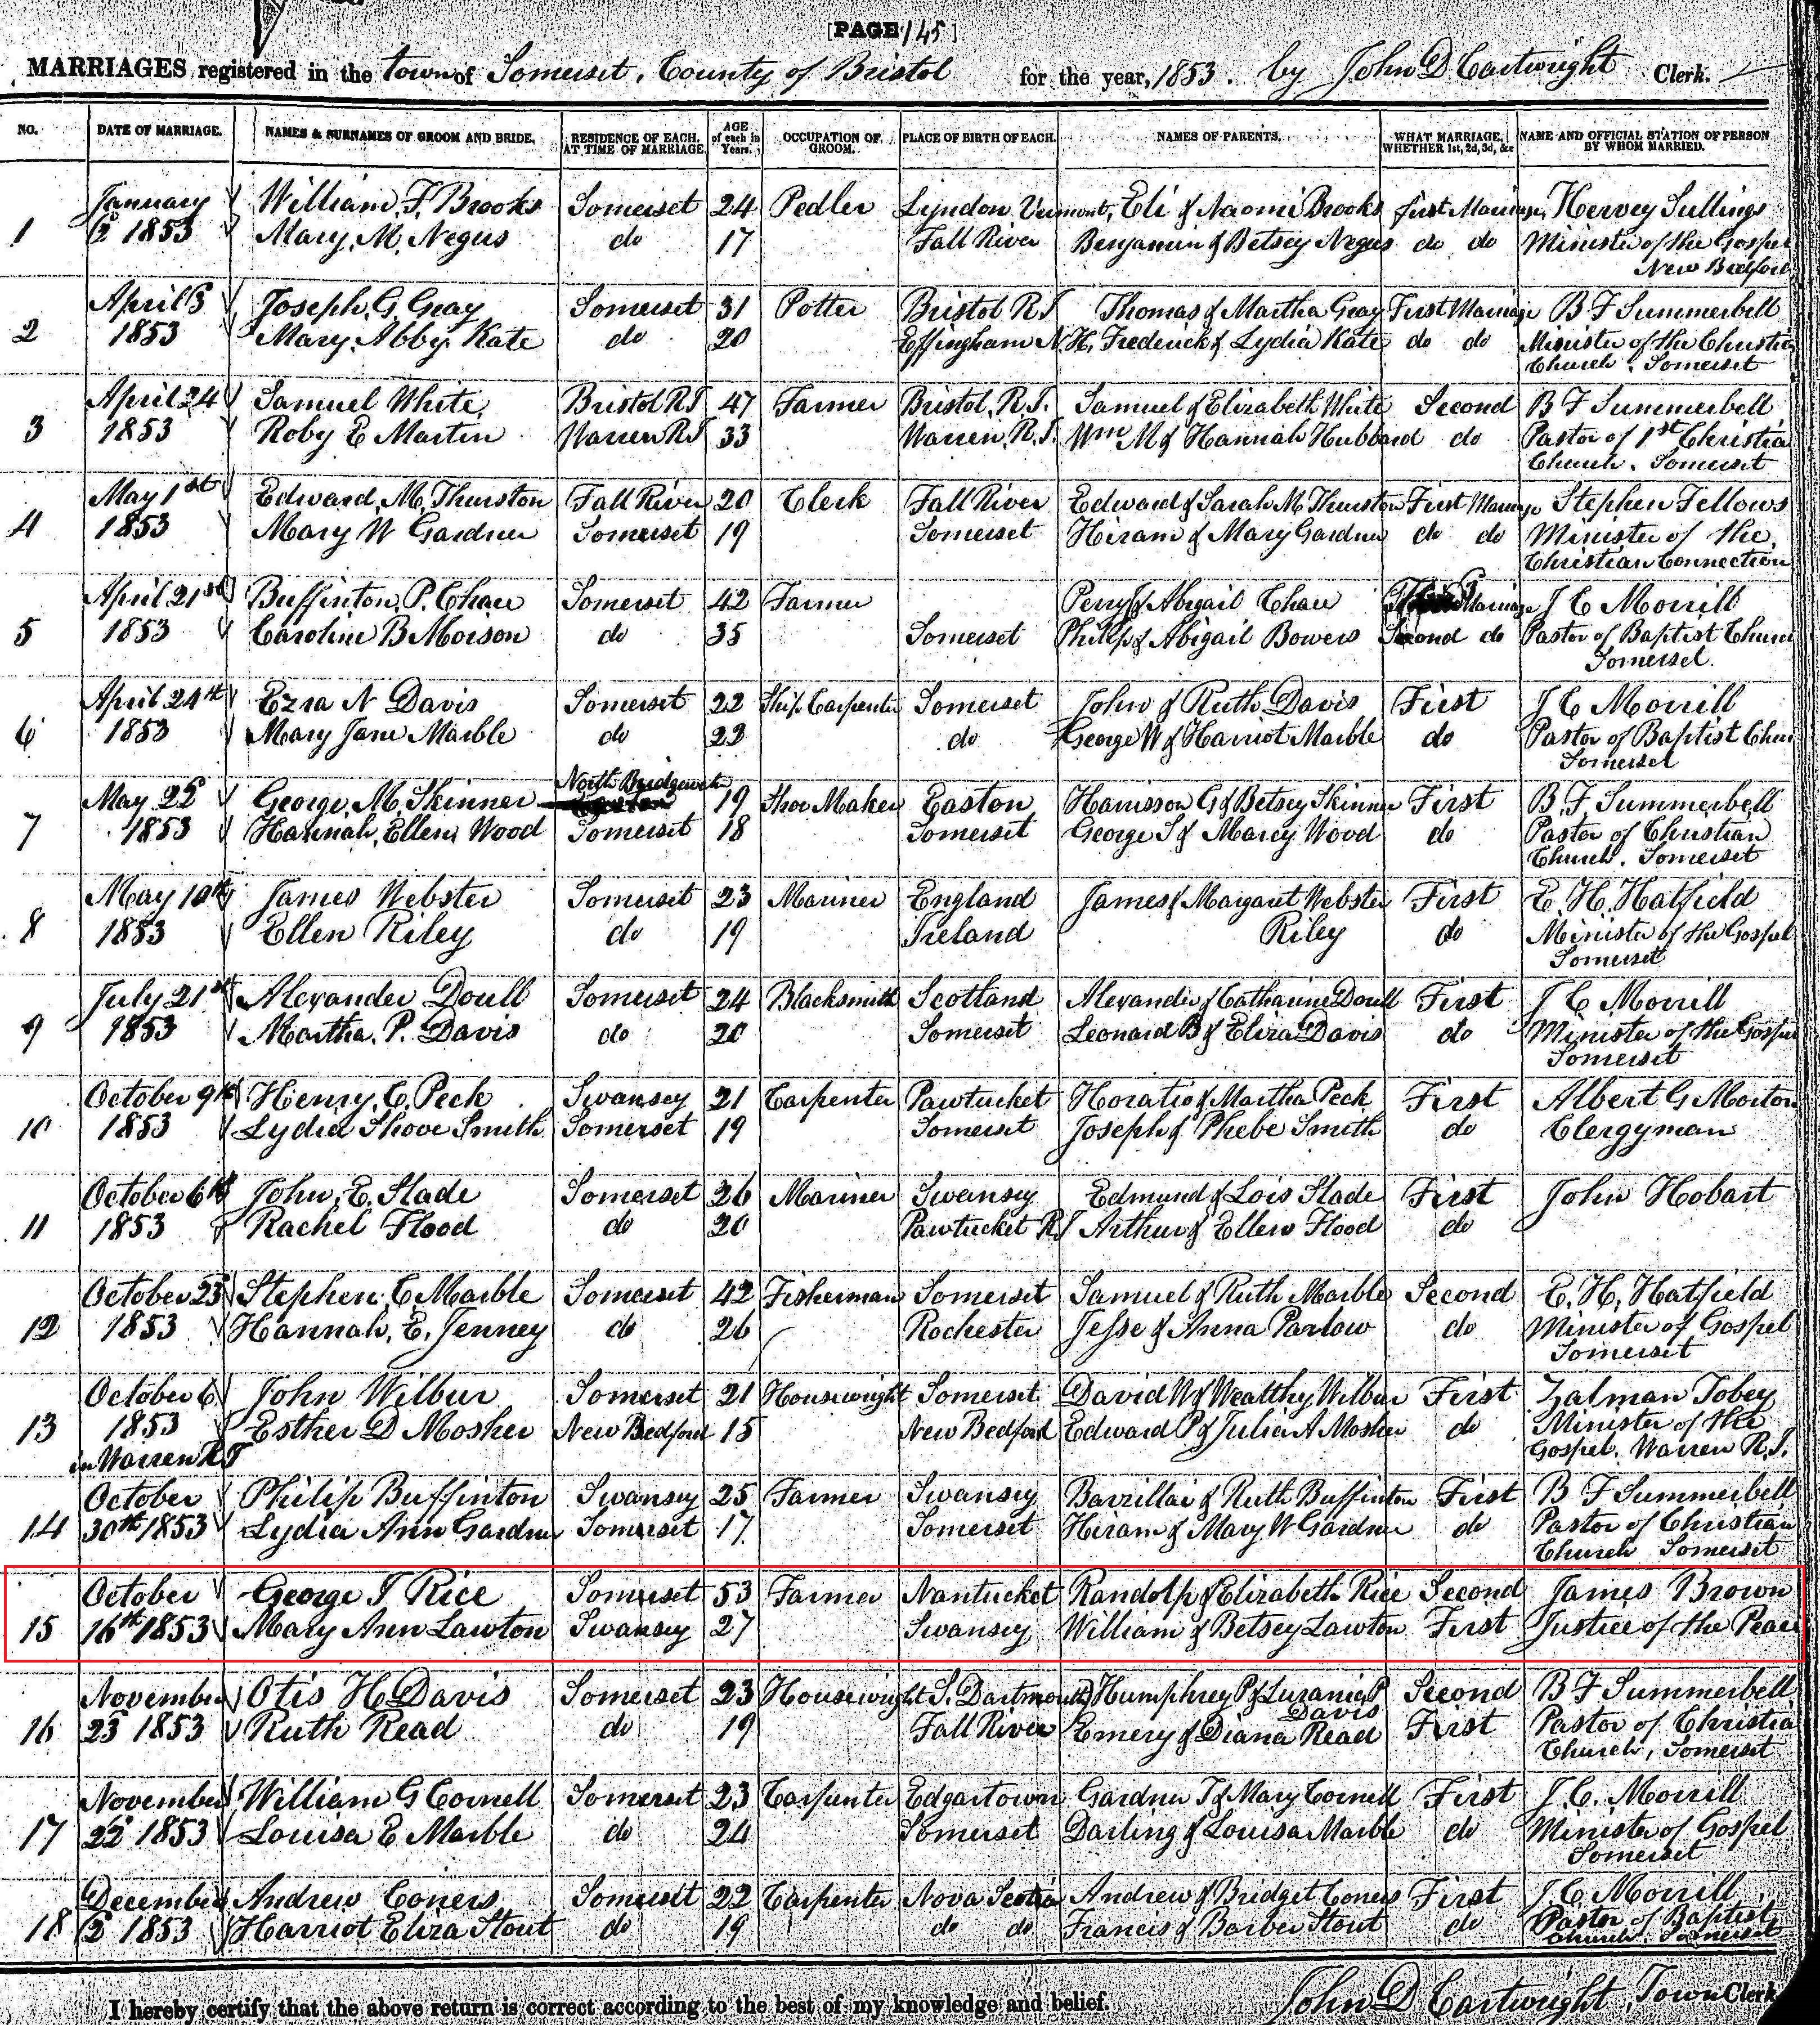 [PAGE 145]
MARRIAGES registered in the town of Somerset, County of Bristol for the year, 1853. by John D Cartwright Clerk.
NO. DATE OF MARRIAGE. NAMES & SURNAMES OF GROOM AND BRIDE. RESIDENCE OF EACH AT TIME OF MARRIAGE. AGE of each in Years. OCCUPATION OF GROOM. PLACE OF BIRTH OF EACH. NAMES OF PARENTS. WHAT MARRIAGE, WHETHER 1st, 2d, 3d, &c NAME AND OFFICIAL STATION OF PERSON BY WHOM MARRIED.
January William F. Brooks Somerset 24 Pedler Lyndon Vermont, Eli & Naomi Brooks first Marriage, Hervey Sullings
1 2 1853 Mary M. Negus do 17 Fall River Benjamin & Betsey Negus do do Minister of the Gospel
New Bedford
April 3 Joseph G. Gray Somerset 31 Potter Bristol R I Thomas & Martha Gray First Marriage B F Summerbell
2 1853 Mary Abby Kate do 20 Effingham N.H. Frederick & Lydia Kate do do Minister of the Christian
Church. Somerset
April 24 Samuel White Bristol R I 47 Farmer Bristol, R.I. Samuel & Elizabeth White Second B F Summerbell
3 1853 Roby E Martin Warren R I 33 Warren, R.I. Wm M & Hannah Hubbard do Pastor of 1st Christia
Church. Somerset
May 1st Edward M. Thurston Fall River 20 Clerk Fall River Edward & Sarah M Thurston First Marriage Stephen Fellows
4 1853 Mary W Gardner Somerset 19 Somerset Hiram & Mary Gardner do do Minister of the
Christian Connection
April 21st Buffinton P. Chace Somerset 42 Farmer Perry & Abigail Chace Marriage J C Morrill
5 1853 Caroline B Moison do 35 Somerset Philip & Abigail Bowers Second do Pastor of Baptist Church
Somerset.
April 24th Ezra N Davis Somerset 22 Ship Carpenter Somerset John & Ruth Davis First J C Morrill
6 1853 Mary Jane Marble do 22 do George W & Harriot Marble do Pastor of Baptist Chur
Somerset
North Bridgewater
May 22 George M Skinner 19 Shoe Maker Easton Harrisson G & Betsey Skinner First B. F. Summerbell
7 1853 Hannah Ellen Wood Somerset 18 Somerset George S & Marcy Wood do Pastor of Christian
Church. Somerset
May 10th James Webster Somerset 23 Mariner England James & Margaret Webster First E. H. Hatfield
8 1853 Ellen Riley do 19 Ireland Riley do Minister of the Gospel
Somerset
July 21st Alexander Doull Somerset 24 Blacksmith Scotland Alexander & Catharine Doull First J C Morrill
9 1853 Martha P. Davis do 20 Somerset Leonard B & Eliza Davis do Minister of the Gospel
Somerset
October 9th Henry C. Peck Swansey 21 Carpenter Pawtucket Horatio & Martha Peck First Albert G Morton
10 1853 Lydia Shove Smith Somerset 19 Somerset Joseph & Phebe Smith do Clergyman
October 6th John E. Slade Somerset 26 Mariner Swansey Edmund & Lois Slade First John Hobart
11 1853 Rachel Flood do 20 Pawtucket R I Arthur & Ellen Flood do
October 23 Stephen C. Marble Somerset 42 Fisherman Somerset Samuel & Ruth Marble Second E. H. Hatfield
12 1853 Hannah E. Jenney do 26 Rochester Jesse & Anna Parlow do Minister of Gospel
Somerset
October 6 John Wilbur Somerset 21 Housewright Somerset David W & Wealthy Wilbur First Zalman Tobey
13 1853 Esther D Mosher New Bedford 15 New Bedford Edward P & Julia A Mosher do Minister of the
in Warren R I Gospel. Warren R.I.
October Philip Buffinton Swansey 25 Farmer Swansey Barzillai & Ruth Buffinton First B F Summerbell
14 30th 1853 Lydia Ann Gardner Somerset 17 Somerset Hiram & Mary W Gardner do Pastor of Christian
Church Somerset
October George T Rice Somerset 53 Farmer Nantucket Randolp & Elizabeth Rice Second James Brown
15 16th 1853 Mary Ann Lawton Swansey 27 Swansey William & Betsey Lawton First Justice of the Peace
November Otis H Davis Somerset 23 Housewright S. Dartmouth Humphrey P & Luzania P Second B F Summerbell
Davis
16 23 1853 Ruth Read do 19 Fall River Emery & Diana Read First Pastor of Christia
Church, Somerset
November William G Cornell Somerset 23 Carpenter Edgartown Gardner T & Mary Cornell First J. C. Morrill
17 22 1853 Louisa E Marble do 24 Somerset Darling & Louisa Marble do Minister of Gospel
Somerset
December Andrew Coners Somerset 22 Carpenter Nova Scotia Andrew & Bridget Coners First J. C Morrill
18 2 1853 Harriot Eliza Stout do 19 do do Francis & Barber Stout do Pastor of Baptist
Church. Somerset
I hereby certify that the above return is correct according to the best of my knowledge and belief. John D Cartwright, Town Clerk